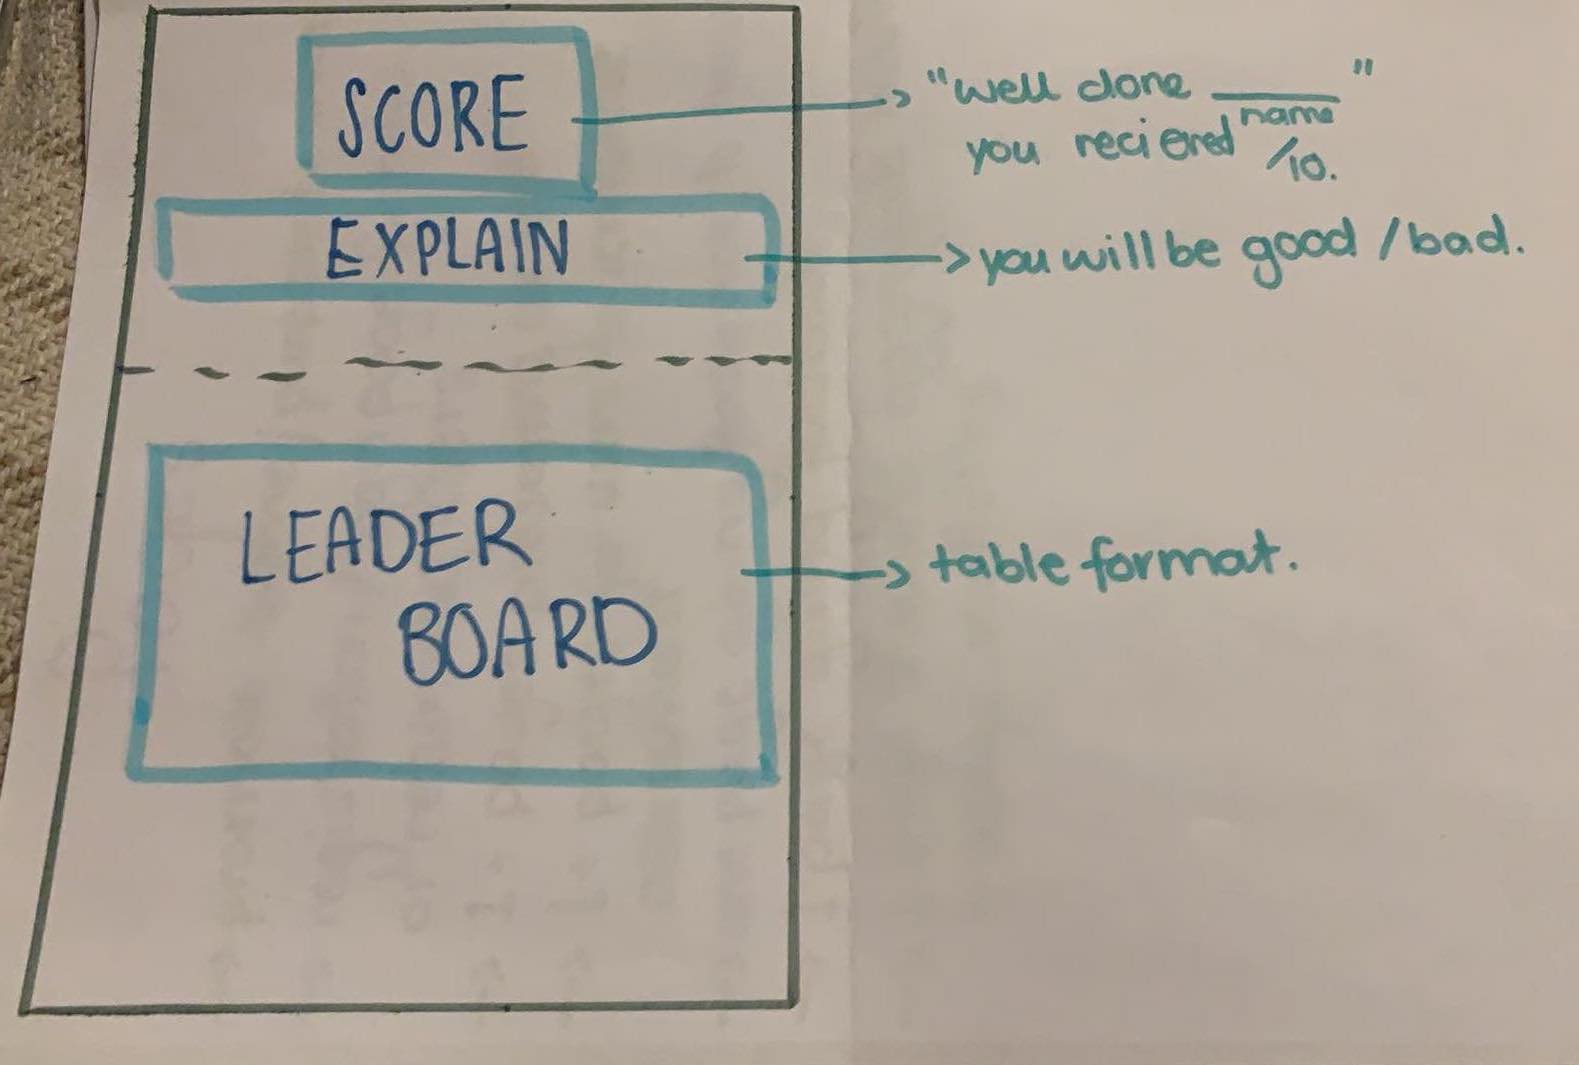 SCORE
"well done ____"
name
you recieved /10.
EXPLAIN
you will be good / bad.
LEADER
BOARD
table format.